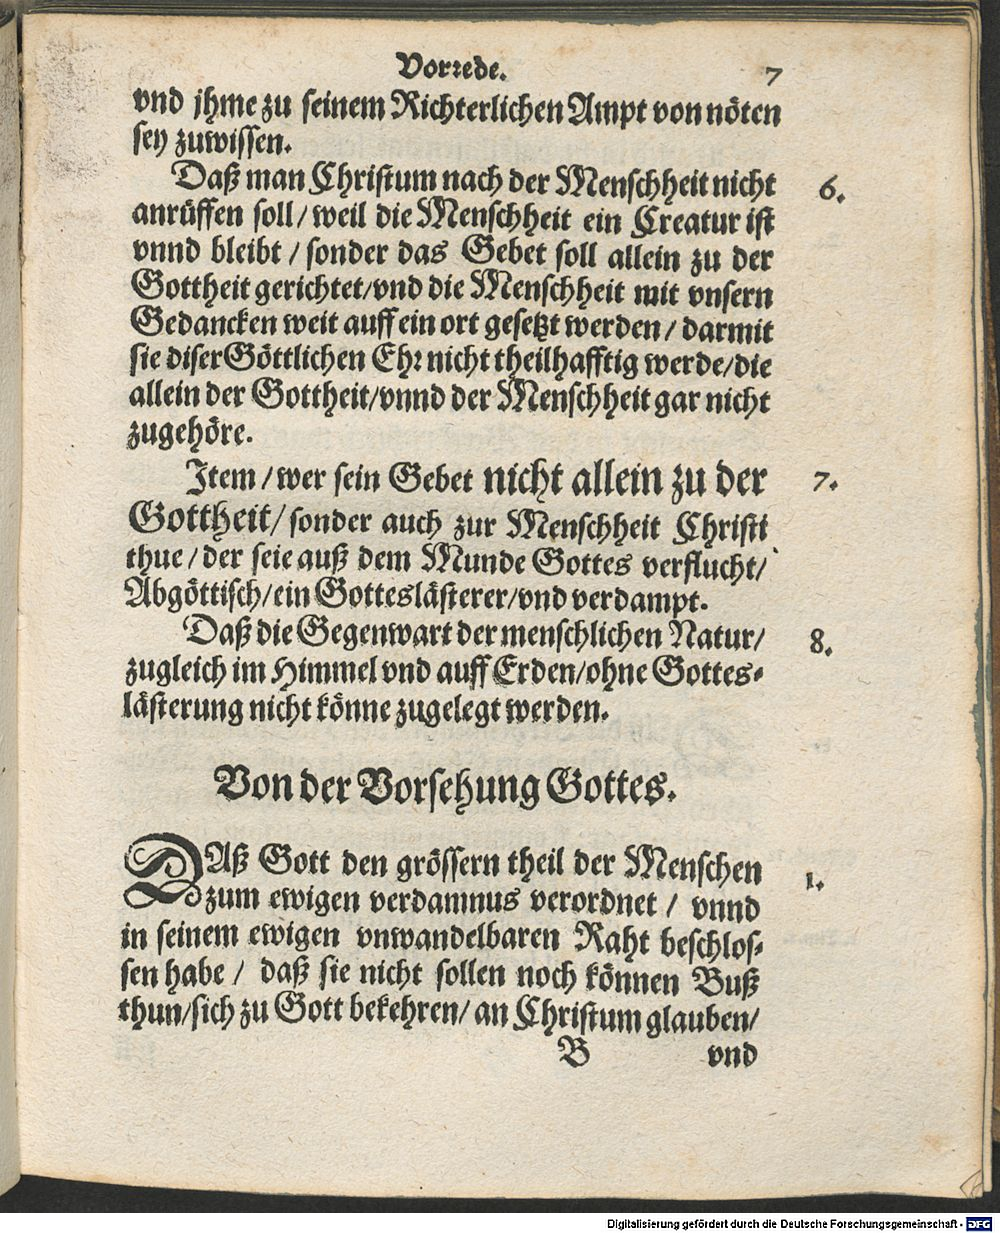 Vorrede. 7
vnd jhme zu seinem Richterlichen Ampt von nöten
sey zuwissen.
Daß man Christum nach der Menschheit nicht 6.
anrüffen soll/ weil die Menschheit ein Creatur ist
vnnd bleibt / sonder das Gebet soll allein zu der
Gottheit gerichtet/vnd die Menschheit mit vnsern
Gedancken weit auff ein ort gesetzt werden / darmit
sie diser Göttlichen Ehr nicht theilhafftig werde/die
allein der Gottheit/vnnd der Menschheit gar nicht
zugehöre.
Item / wer sein Gebet nicht allein zu der 7.
Gottheit/ sonder auch zur Menschheit Christi
thue / der seie auß dem Munde Gottes verflucht/
Abgöttisch/ein Gotteslästerer/vnd verdampt.
Daß die Gegenwart der menschlichen Natur/ 8.
zugleich im Himmel vnd auff Erden/ohne Gottes-
lästerung nicht könne zugelegt werden.
Von der Vorsehung Gottes.
DAß Gott den grössern theil der Menschen 1.
zum ewigen verdamnus verordnet / vnnd
in seinem ewigen vnwandelbaren Raht beschlos-
sen habe / daß sie nicht sollen noch können Buß
thun/sich zu Gott bekehren/ an Christum glauben/
B vnd
Digitalisierung gefördert durch die Deutsche Forschungsgemeinschaft - DFG